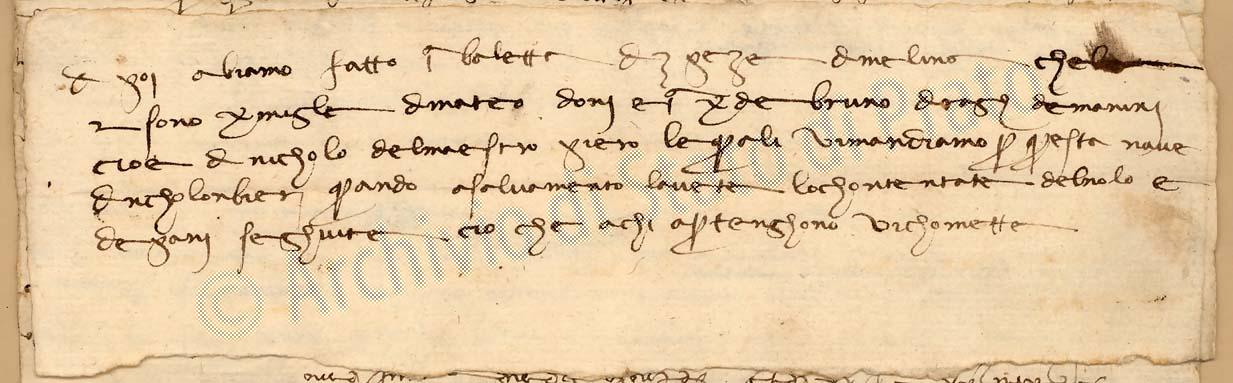 e poi abiamo fatto j baletta di 3 peze dmelino che
2 sono p migle dmateo donj e j p de bruno dragh demanini
cioe dnicholo delmaestro piero le quali vimandiamo per questa nave
quando asalvamento lavete lochontentate delnolo e
depani seghuite cio che achi apartenghono vichomette
© Archivio di Stato di Prato